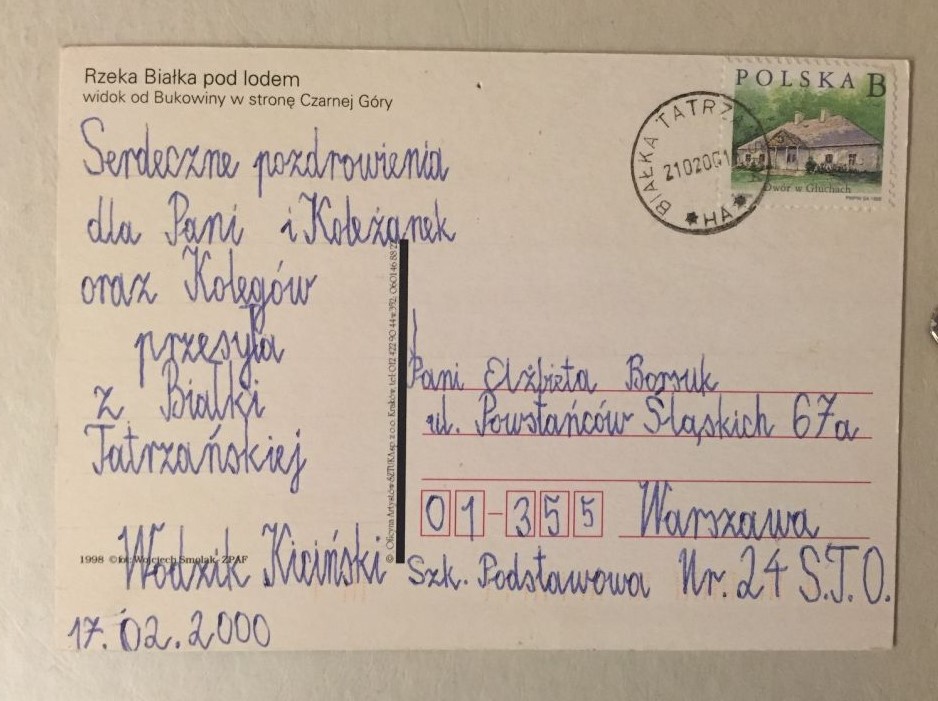 Rzeka Białka pod lodem
widok od Bukowiny w stronę Czarnej Góry
Serdeczne pozdrowienia
dla Pani i Koleżanek
oraz Kolegów
przesyła
z Białki
Tatrzańskiej
Włodzik Kiciński
17.02.2000
1998 © fot. Wojciech Smolak, ZPAF
POLSKA B
Dwór w Głuchach
BIAŁKA TATRZA
210200
*HA*
Pani Elżbieta Borsuk
ul. Powstańców Śląskich 67a
01-355 Warszawa
Szk. Podstawowa Nr. 24 S.T.O.
© Oficyna Artystów SZTUKA sp. z o.o. Kraków, tel.